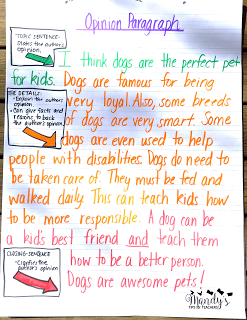 Opinion Paragraph
TOPIC SENTENCE-
States the author's
opinion.
I think dogs are the perfect pet
for kids. Dogs are famous for being
THE DETAILS:
• Explain the author's
opinion
• Can give facts and
reasons to back
the author's opinion
very loyal. Also, some breeds
of dogs are very smart. Some
dogs are even used to help
people with disabilities. Dogs do need to
be taken care of. They must be fed and
walked daily. This can teach kids how
to be more responsible. A dog can be
a kids best friend and teach them
CLOSING SENTENCE
the author's opinion
how to be a better person.
Dogs are awesome pets!
Mandy's
TIPS for TEACHERS